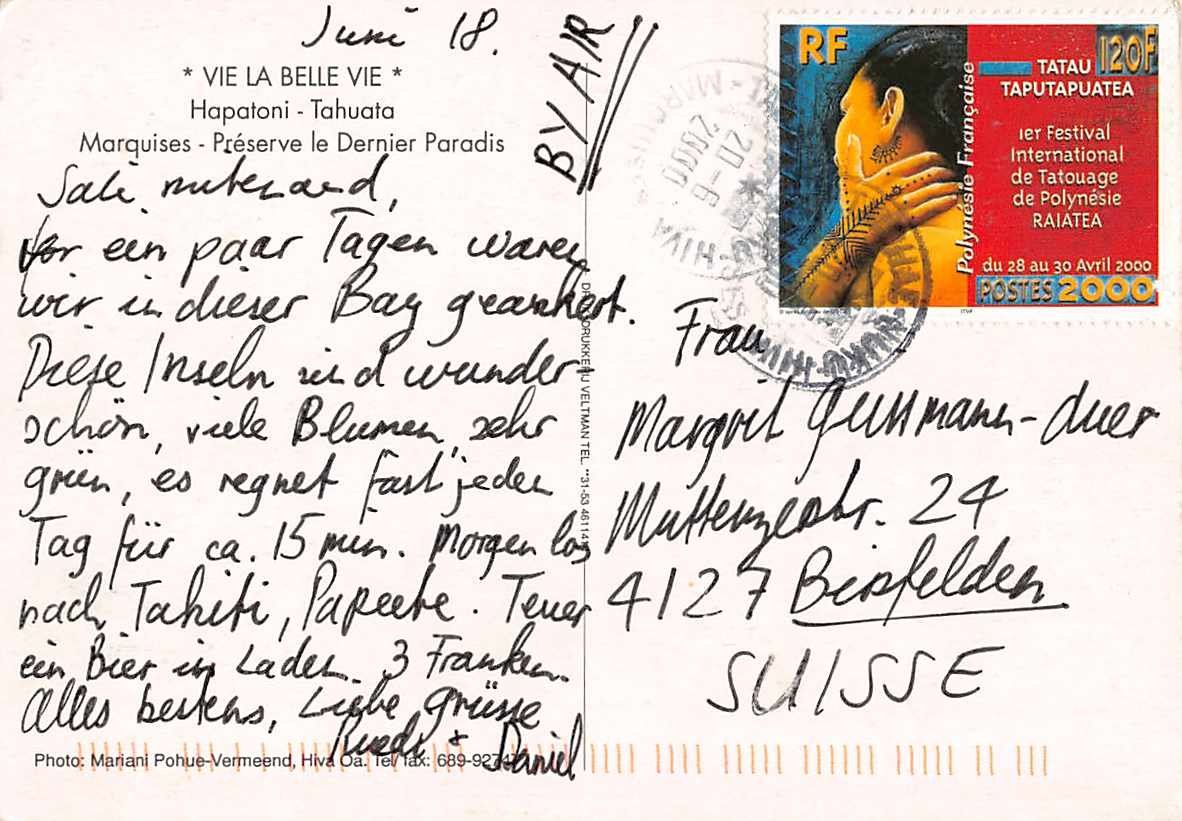 Juni 18.
* VIE LA BELLE VIE *
Hapatoni - Tahuata
Marquises - Préserve le Dernier Paradis
BY AIR
Sali mitenand,
Vor ein paar Tagen waren
wir in dieser Bay geankert.
Diese Inseln sind wunder
schön, viele Blumen, sehr
grün, es regnet fast jeden
Tag für ca. 15 min. Morgen los
nach Tahiti, Papeete. Teuer
ein Bier im Laden 3 Franken.
Alles bestens, Liebe Grüsse
Ruedi + Daniel
Photo: Mariani Pohue-Vermeend, Hiva Oa. Tel/fax: 689-927
DRUKKERIJ VELTMAN TEL. **31-53 46114
RF
120F
TATAU
TAPUTAPUATEA
1er Festival
International
de Tatouage
de Polynésie
RAIATEA
du 28 au 30 Avril 2000
POSTES 2000
Polynésie Française
20-6
2000
Frau
Margrit
Muttenzerstr. 24
4127 Birsfelden
SUISSE